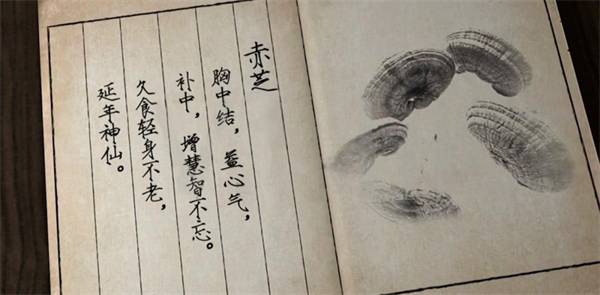 赤芝
胸中结，益心气，
补中，增慧智不忘。
久食轻身不老，
延年神仙。